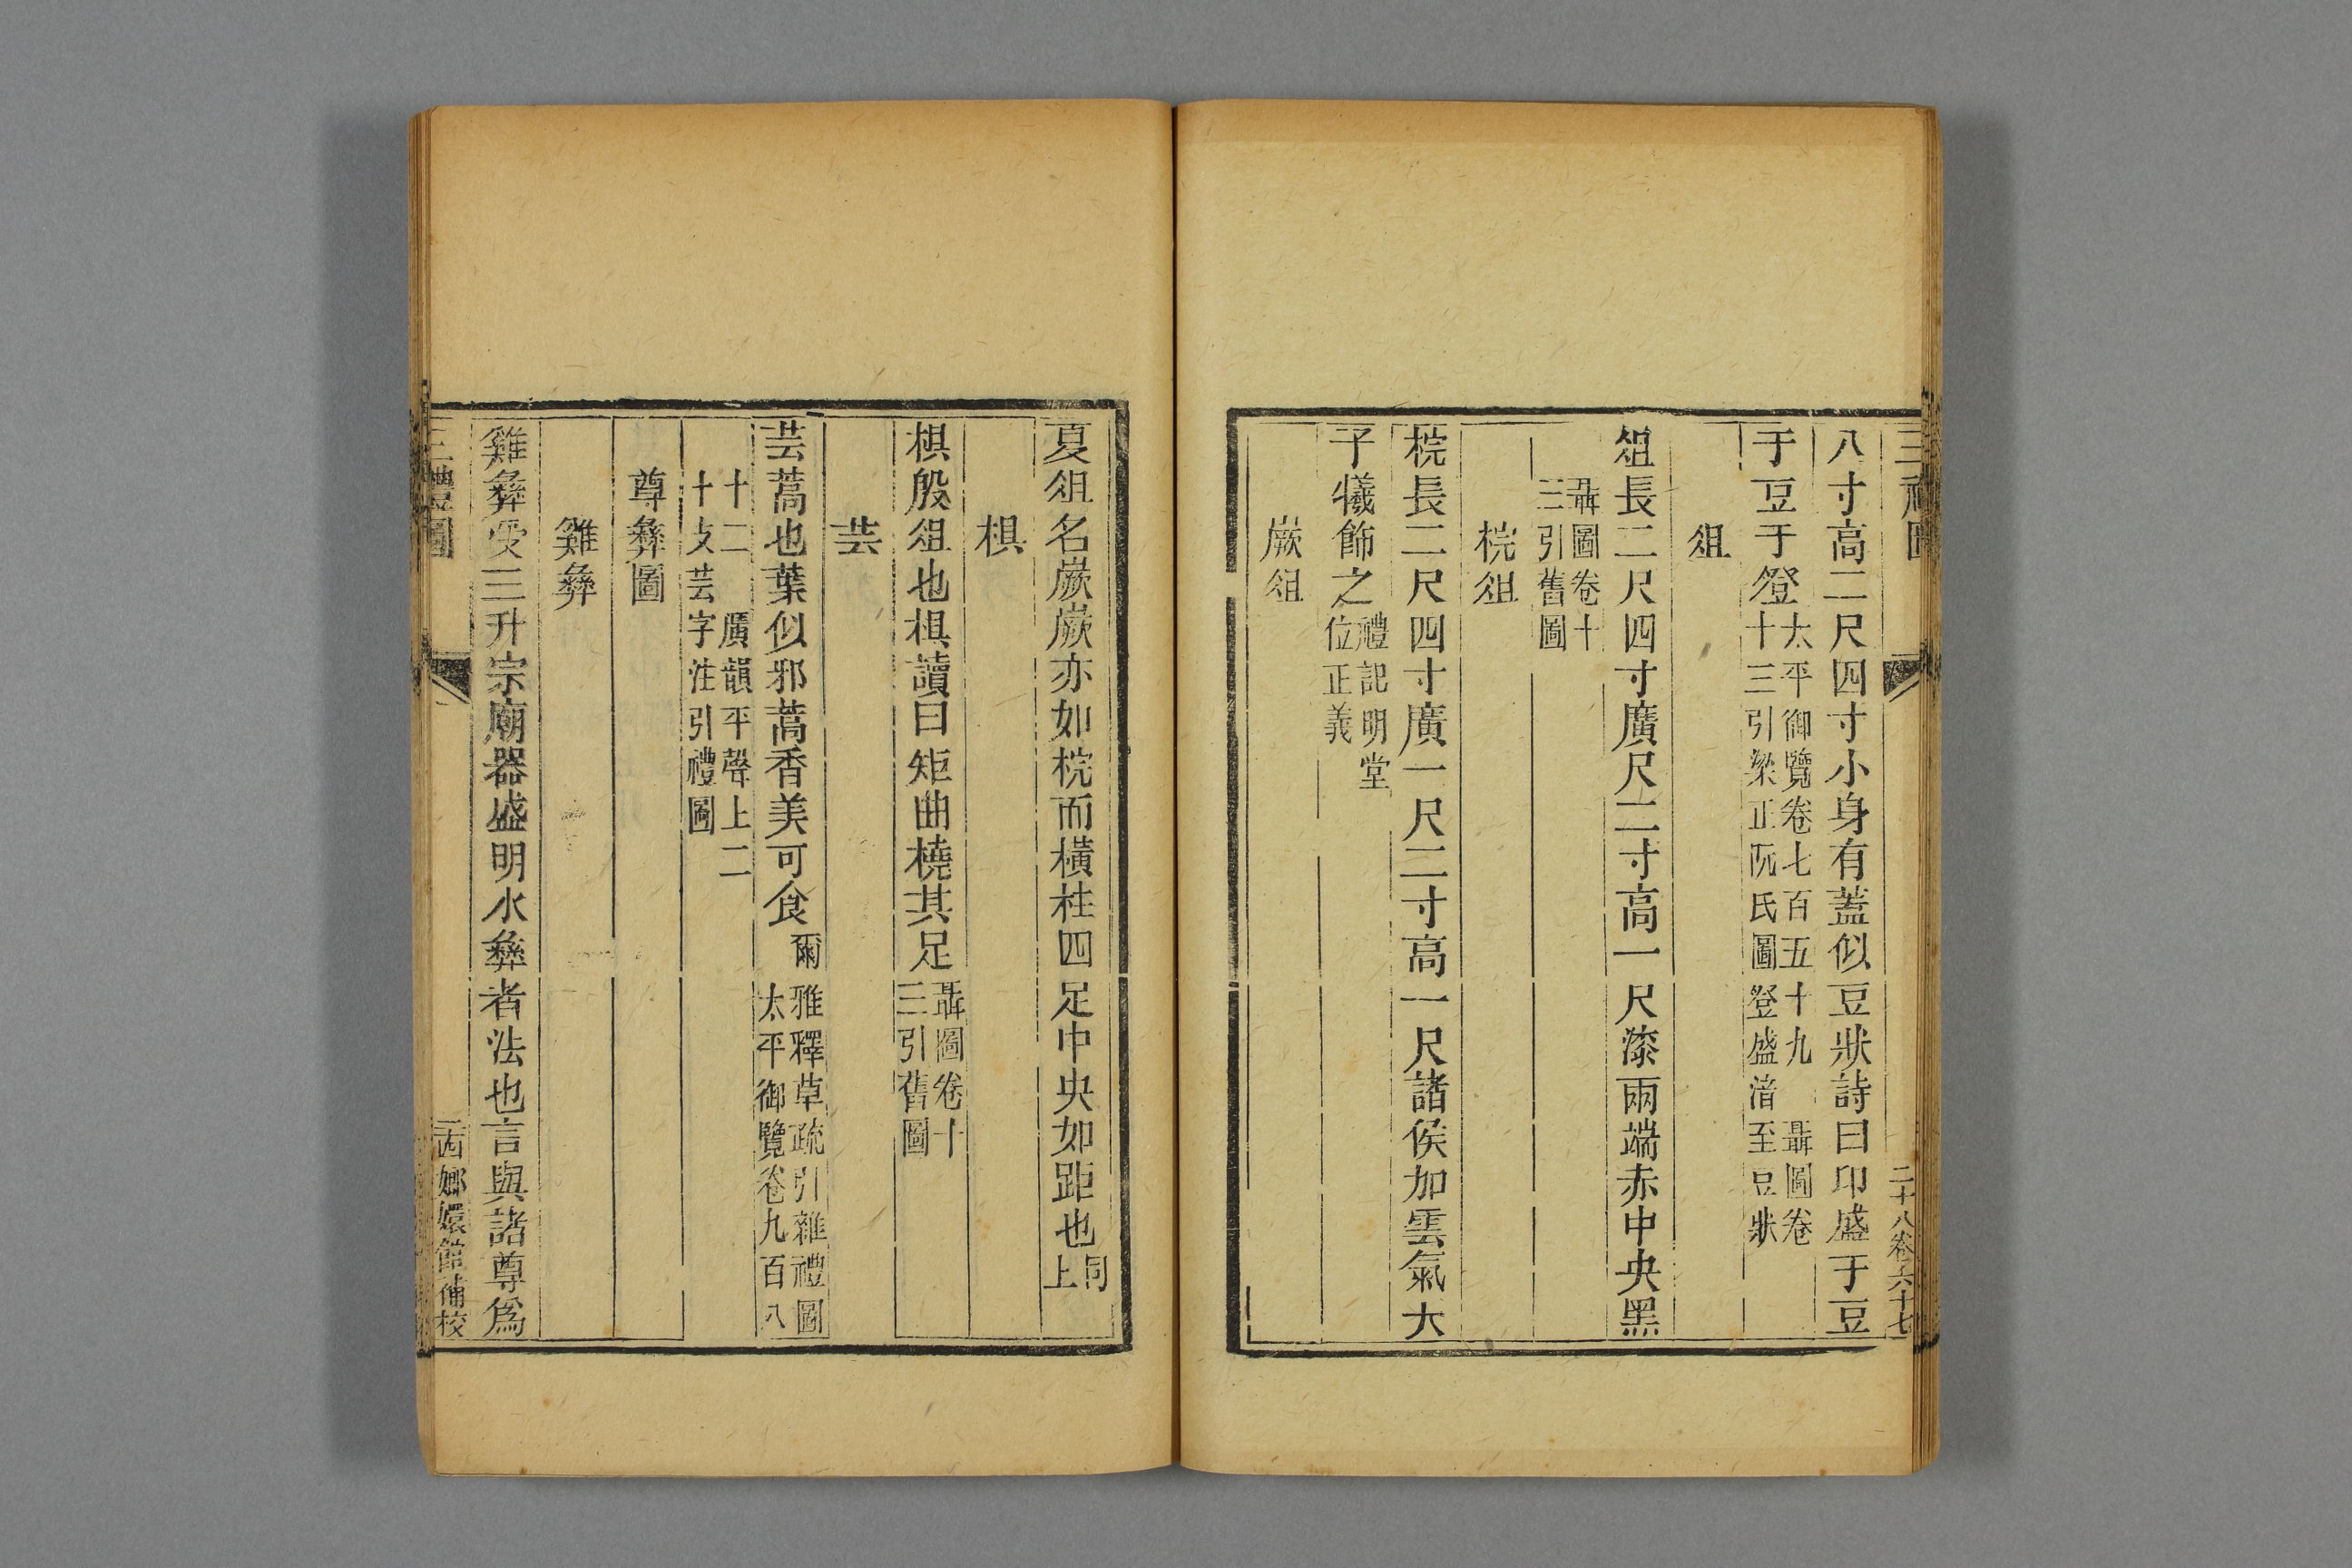 二十八卷六十七
八寸高二尺四寸小身有蓋似豆狀詩曰卬盛于豆
于豆于豋太平御覽卷七百五十九 聶圖卷
十三引梁正阮氏圖登盛湆至豆狀
俎
俎長二尺四寸廣尺二寸高一尺漆兩端赤中央黑
聶圖卷十
三引舊圖
梡俎
梡長二尺四寸廣一尺二寸高一尺諸侯加雲氣天
子犧飾之禮記明堂
位正義
嶡俎
夏俎名嶡嶡亦如梡而橫柱四足中央如距也同
上
椇
椇殷俎也椇讀曰矩曲橈其足聶圖卷十
三引舊圖
芸
芸蒿也葉似邪蒿香美可食爾雅釋草疏引雜禮圖
太平御覽卷九百八
十二 廣韻平聲上二
十文芸字注引禮圖
尊彝圖
雞彝
雞彝受三升宗廟器盛明水彝者法也言與諸尊爲
三禮圖
嫏嬛館補校